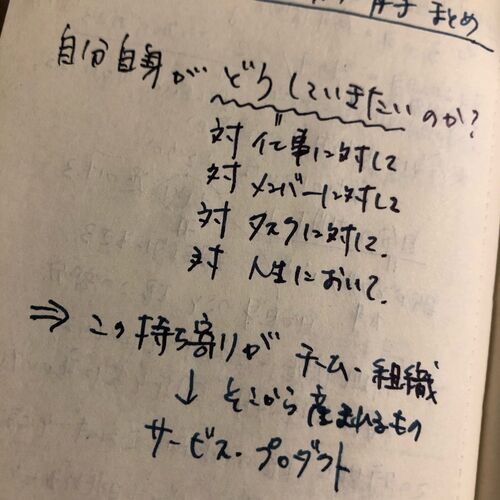 まとめ
自分自身が どうしていきたい のか?
対 仕事に対して
対 メンバーに対して
対 タスクに対して.
対 人生において.
⇒ この持ち寄りが チーム・組織
↓ そこから産まれるもの
サービス・プロダクト